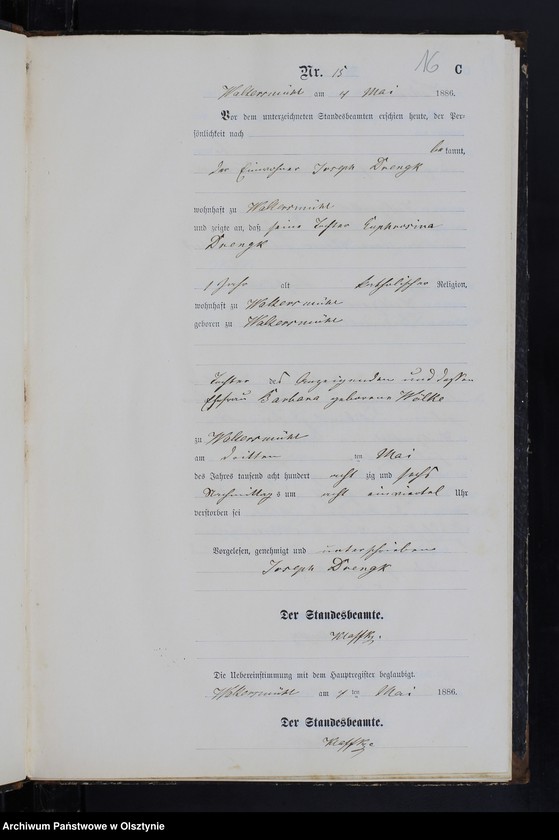 16
Nr. 15 C
Waltersmühl am 4 Mai 1886.
Vor dem unterzeichneten Standesbeamten erschien heute, der Per-
sönlichkeit nach
bekannt,
der Einwohner Joseph Drengk
wohnhaft zu Waltersmühl
und zeigte an, daß seine Tochter Euphrosina
Drengk
1 Jahr alt katholischer Religion,
wohnhaft zu Waltersmühl
geboren zu Waltersmühl
Tochter des Anzeigenden und dessen
Ehefrau Barbara geborene Wölke
zu Waltersmühl
am dritten ten Mai
des Jahres tausend acht hundert acht zig und sechs
Nachmittags um acht einviertel Uhr
verstorben sei
Vorgelesen, genehmigt und unterschrieben
Joseph Drengk
Der Standesbeamte.
Die Uebereinstimmung mit dem Hauptregister beglaubigt.
Waltersmühl am 4 ten Mai 1886.
Der Standesbeamte.
Archiwum Państwowe w Olsztynie